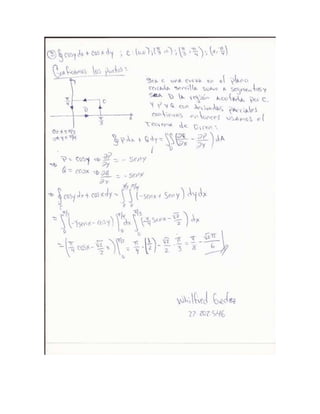 ③ ∮ cosy dx + cosx dy ; C: (0,0); (π/3, 0); (π/3, π/4); (0, π/4)
Graficamos los puntos:
Sea C una curva en el plano
cerrada sencilla suave a segmentos y
sea D la región acotada por C.
Y P y Q con derivadas parciales
continuas entonces usamos el
Teorema de Green:
∮ P dx + Q dy = ∬ (∂Q/∂x - ∂P/∂y) dA
P = cosy ⇒ ∂P/∂y = - seny
Q = cosx ⇒ ∂Q/∂x = - senx
⇒ ∮ cosy dx + cosx dy = ∫∫ (-senx + seny) dydx
= ∫ (-y senx - cosy) | dx = ∫ (-π/4 senx - √2/2
= (π/4 cosx - √2/2
Whilfred
27.202.546